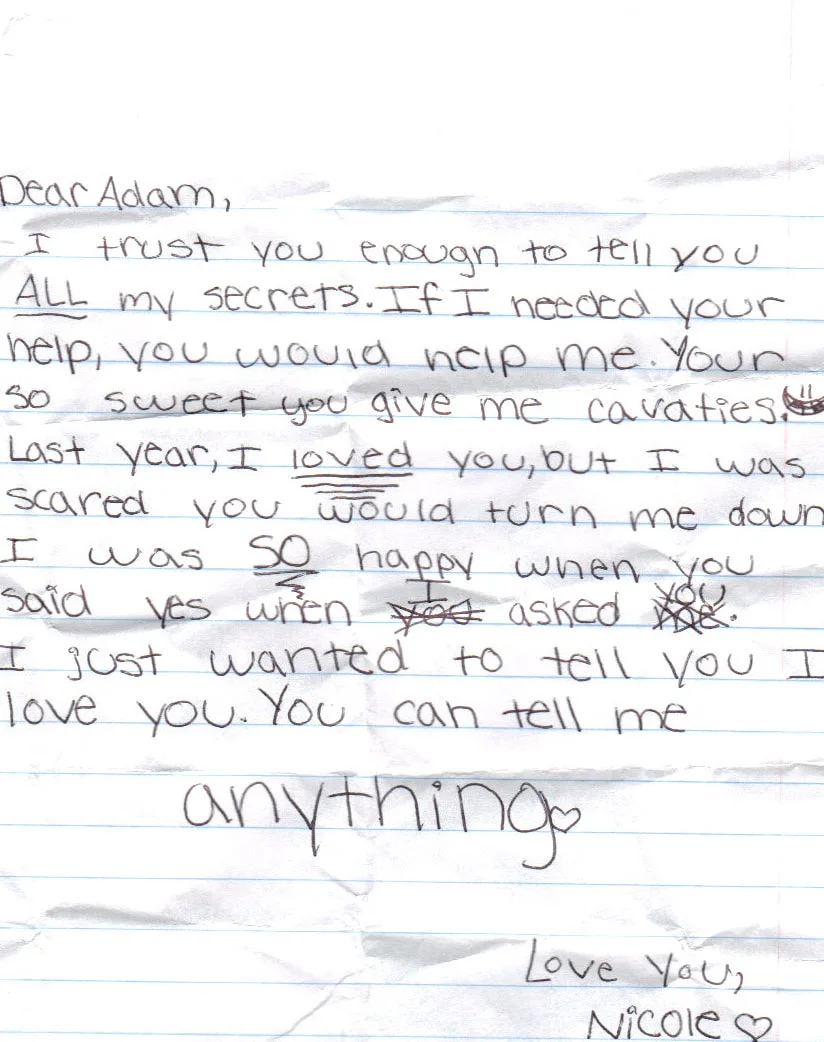 Dear Adam,
I trust you enough to tell you
ALL my secrets. If I needed your
help, you would help me. Your
so sweet you give me cavaties.
Last year, I loved you, but I was
scared you would turn me down
I was SO happy when you
said yes when I asked you.
I just wanted to tell you I
love you. You can tell me
anything♡
Love You,
Nicole ♡